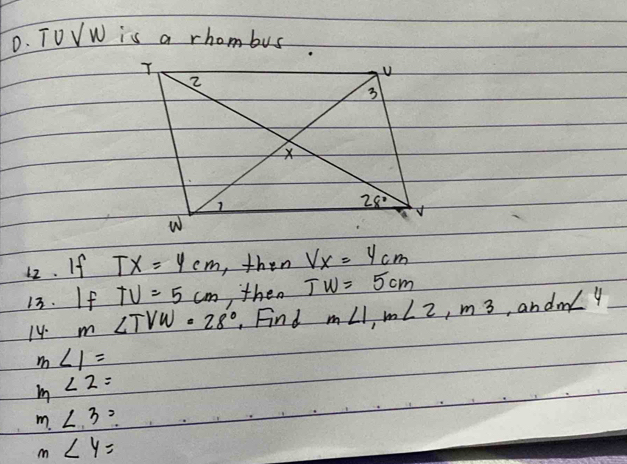 D. TUVW is a rhombus.
T
2
U
3
X
W
1
28°
V
12. If TX = 4 cm, then VX = 4 cm
13. If TU = 5 cm, then TW = 5 cm
14. m ∠TVW = 28°. Find m∠1, m∠2, m3, and m∠4
m∠1 =
m∠2 =
m∠3 =
m∠4 =